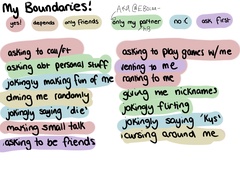 My Boundaries!
yes!
depends
only friends
only my partner
no <
ask first
asking to call/FT
asking abt personal stuff
jokingly making fun of me
dming me randomly
jokingly saying 'die'
making small talk
asking to be friends
asking to play games w/me
venting to me
ranting to me
giving me nicknames
jokingly flirting
jokingly saying 'Kys'
cursing around me